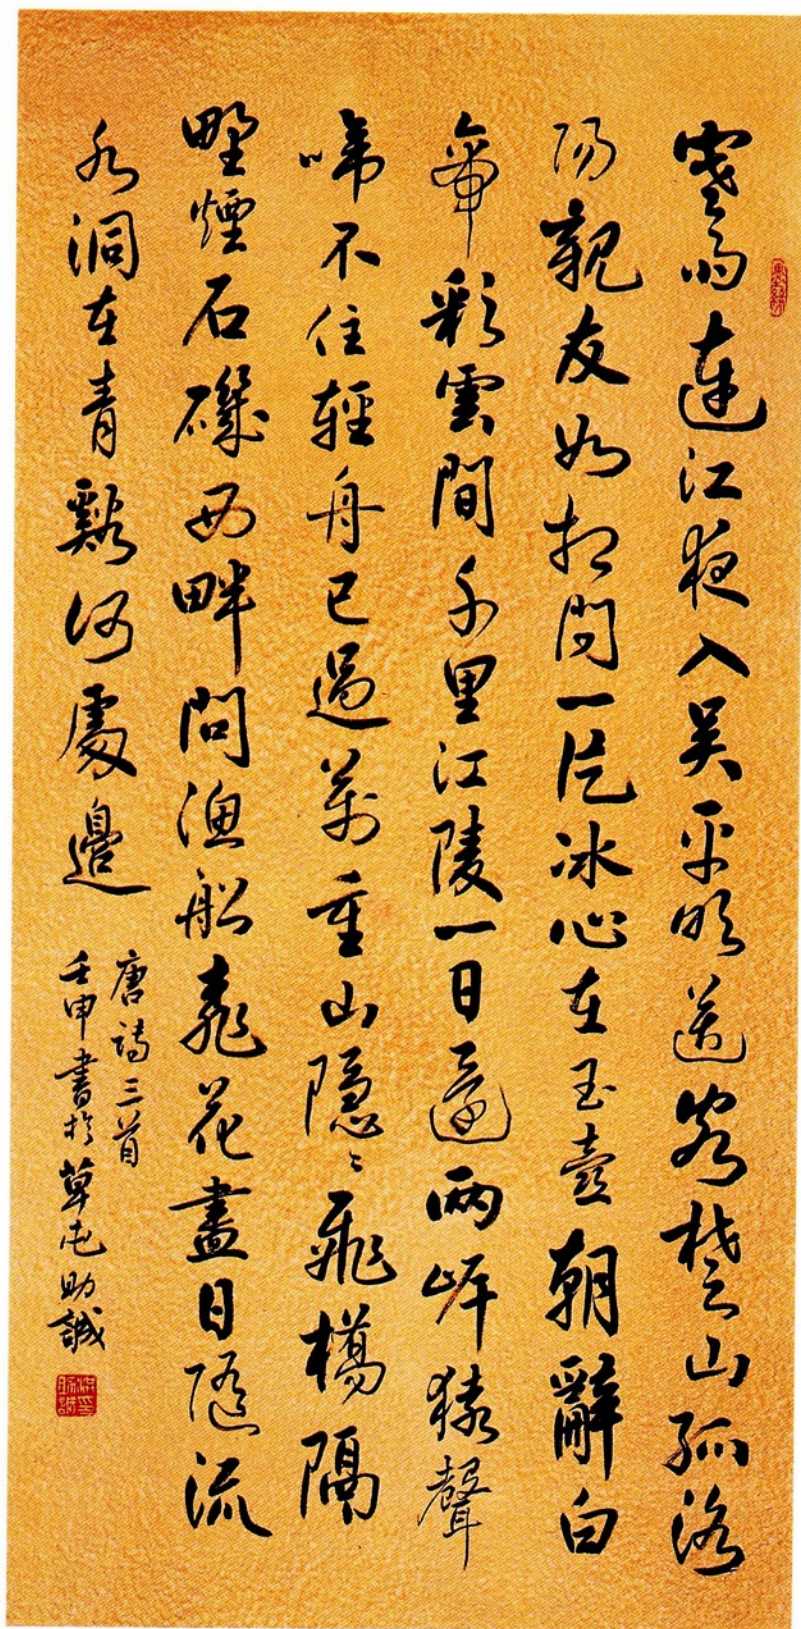 寒雨連江夜入吳平明送客楚山孤洛
陽親友如相問一片冰心在玉壺朝辭白
帝彩雲間千里江陵一日還兩岸猿聲
啼不住輕舟已過萬重山隱〻飛橋隔
野煙石磯西畔問漁船桃花盡日隨流
水洞在青谿何處邊
唐詩三首
壬申書於草屯助誠